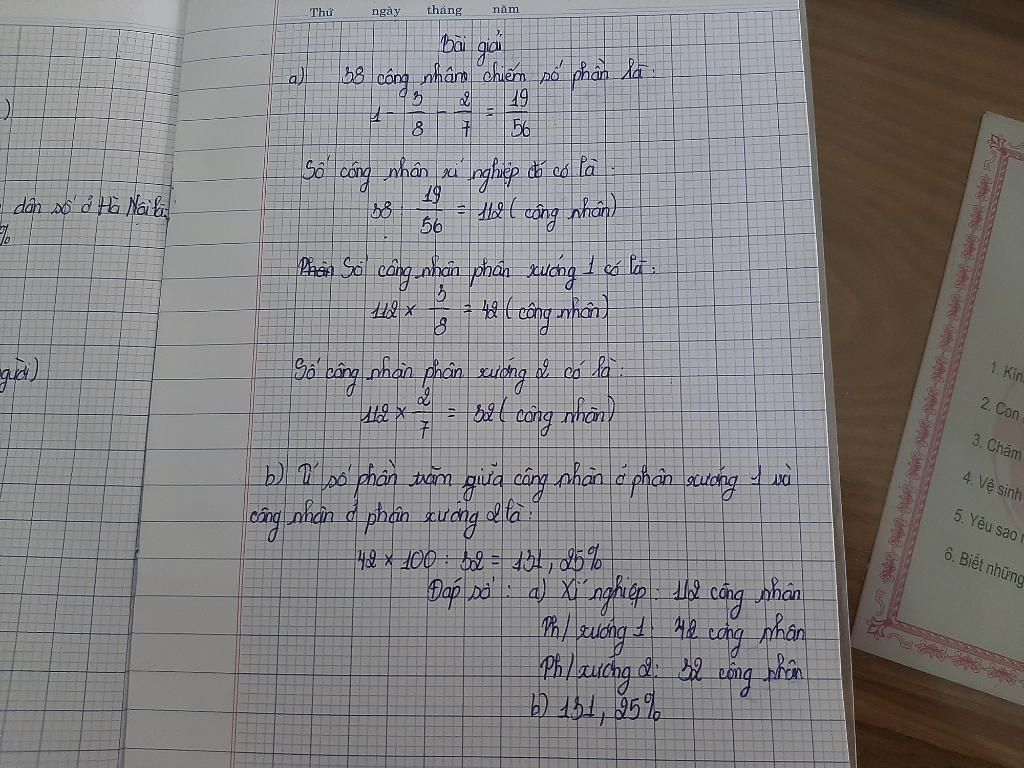 Thứ ngày tháng năm
Bài giải
a) 38 công nhân chiếm số phần là:
1 - 3/8 - 2/7 = 19/56
Số công nhân xí nghiệp đó có là:
38 : 19/56 = 112 (công nhân)
Phân Số công nhân phân xưởng 1 có là:
112 × 3/8 = 42 (công nhân)
Số công nhân phân xưởng 2 có là:
112 × 2/7 = 32 (công nhân)
b) Tỉ số phần trăm giữa công nhân ở phân xưởng 1 và
công nhân ở phân xưởng 2 là:
42 × 100 : 32 = 131,25%
Đáp số: a) Xí nghiệp: 112 công nhân
Ph/xưởng 1: 42 công nhân
Ph/xưởng 2: 32 công nhân
b) 131,25%
)
dân số ở Hà Nội là
%
người)
1. Kín
2. Con
3. Chăm
4. Vệ sinh
5. Yêu sao
6. Biết những